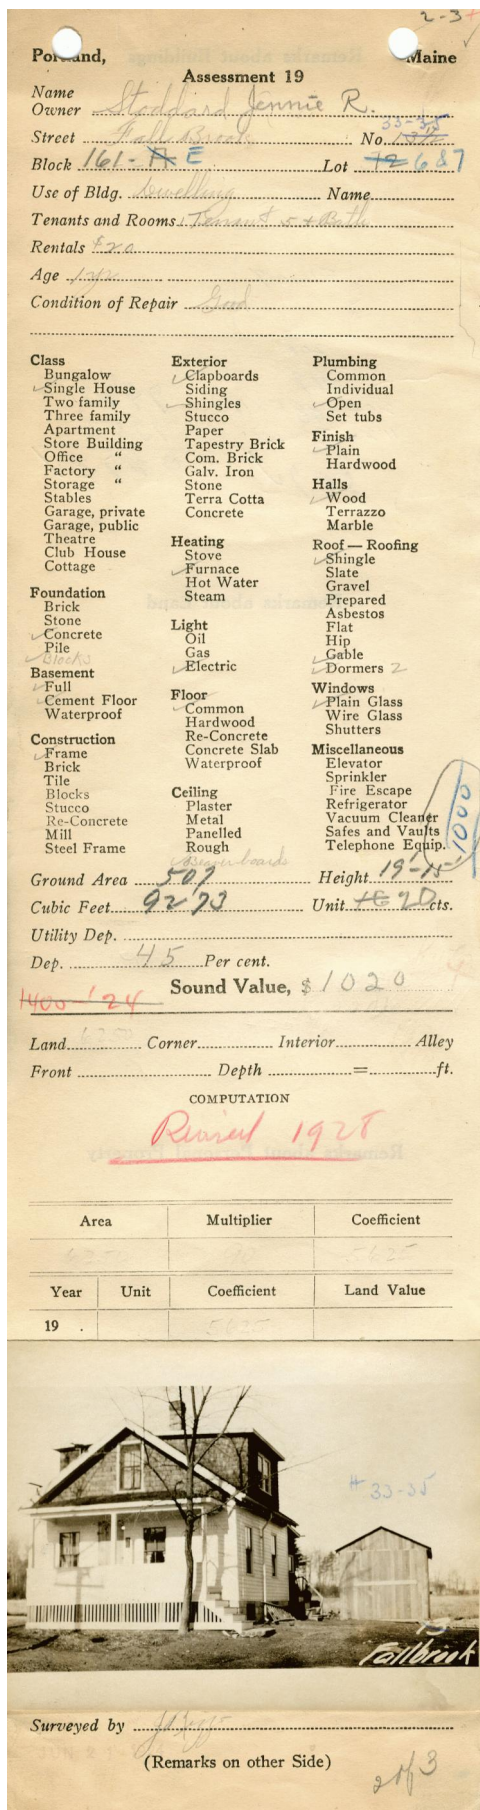 2-3
Portland, Maine
Assessment 19
Name
Owner Stoddard Jennie R.
33-35
Street Fallbrook No.
Block 161-A E Lot 72 6 & 7
Use of Bldg. Dwelling Name
Tenants and Rooms Tenant 5 + Bath
Rentals $20
Age 1 yr
Condition of Repair Good
Class
Bungalow
✓Single House
Two family
Three family
Apartment
Store Building
Office "
Factory "
Storage "
Stables
Garage, private
Garage, public
Theatre
Club House
Cottage
Foundation
Brick
Stone
✓Concrete
Pile
✓Blocks
Basement
✓Full
✓Cement Floor
Waterproof
Construction
✓Frame
Brick
Tile
Blocks
Stucco
Re-Concrete
Mill
Steel Frame
Exterior
✓Clapboards
Siding
✓Shingles
Stucco
Paper
Tapestry Brick
Com. Brick
Galv. Iron
Stone
Terra Cotta
Concrete
Heating
Stove
✓Furnace
Hot Water
Steam
Light
Oil
Gas
✓Electric
Floor
✓Common
Hardwood
Re-Concrete
Concrete Slab
Waterproof
Ceiling
Plaster
Metal
Panelled
Rough
✓Beaverboard
Plumbing
Common
Individual
✓Open
Set tubs
Finish
✓Plain
Hardwood
Halls
✓Wood
Terrazzo
Marble
Roof — Roofing
✓Shingle
Slate
Gravel
Prepared
Asbestos
Flat
Hip
✓Gable
✓Dormers 2
Windows
✓Plain Glass
Wire Glass
Shutters
Miscellaneous
Elevator
Sprinkler
Fire Escape
Refrigerator
Vacuum Cleaner
Safes and Vaults
Telephone Equip.
1000
Ground Area 507 Height 19'-15'
Cubic Feet 9273 Unit 16 20 cts.
Utility Dep.
Dep. 45 Per cent.
Sound Value, $1020
1400-'24
Land 6250 Corner Interior Alley
Front Depth = ft.
COMPUTATION
Revised 1928
Area Multiplier Coefficient
6250 90 5625
Year Unit Coefficient Land Value
19 . 5625
# 33-35
Fallbrook
Surveyed by
JUN 21
(Remarks on other Side)
2 of 3